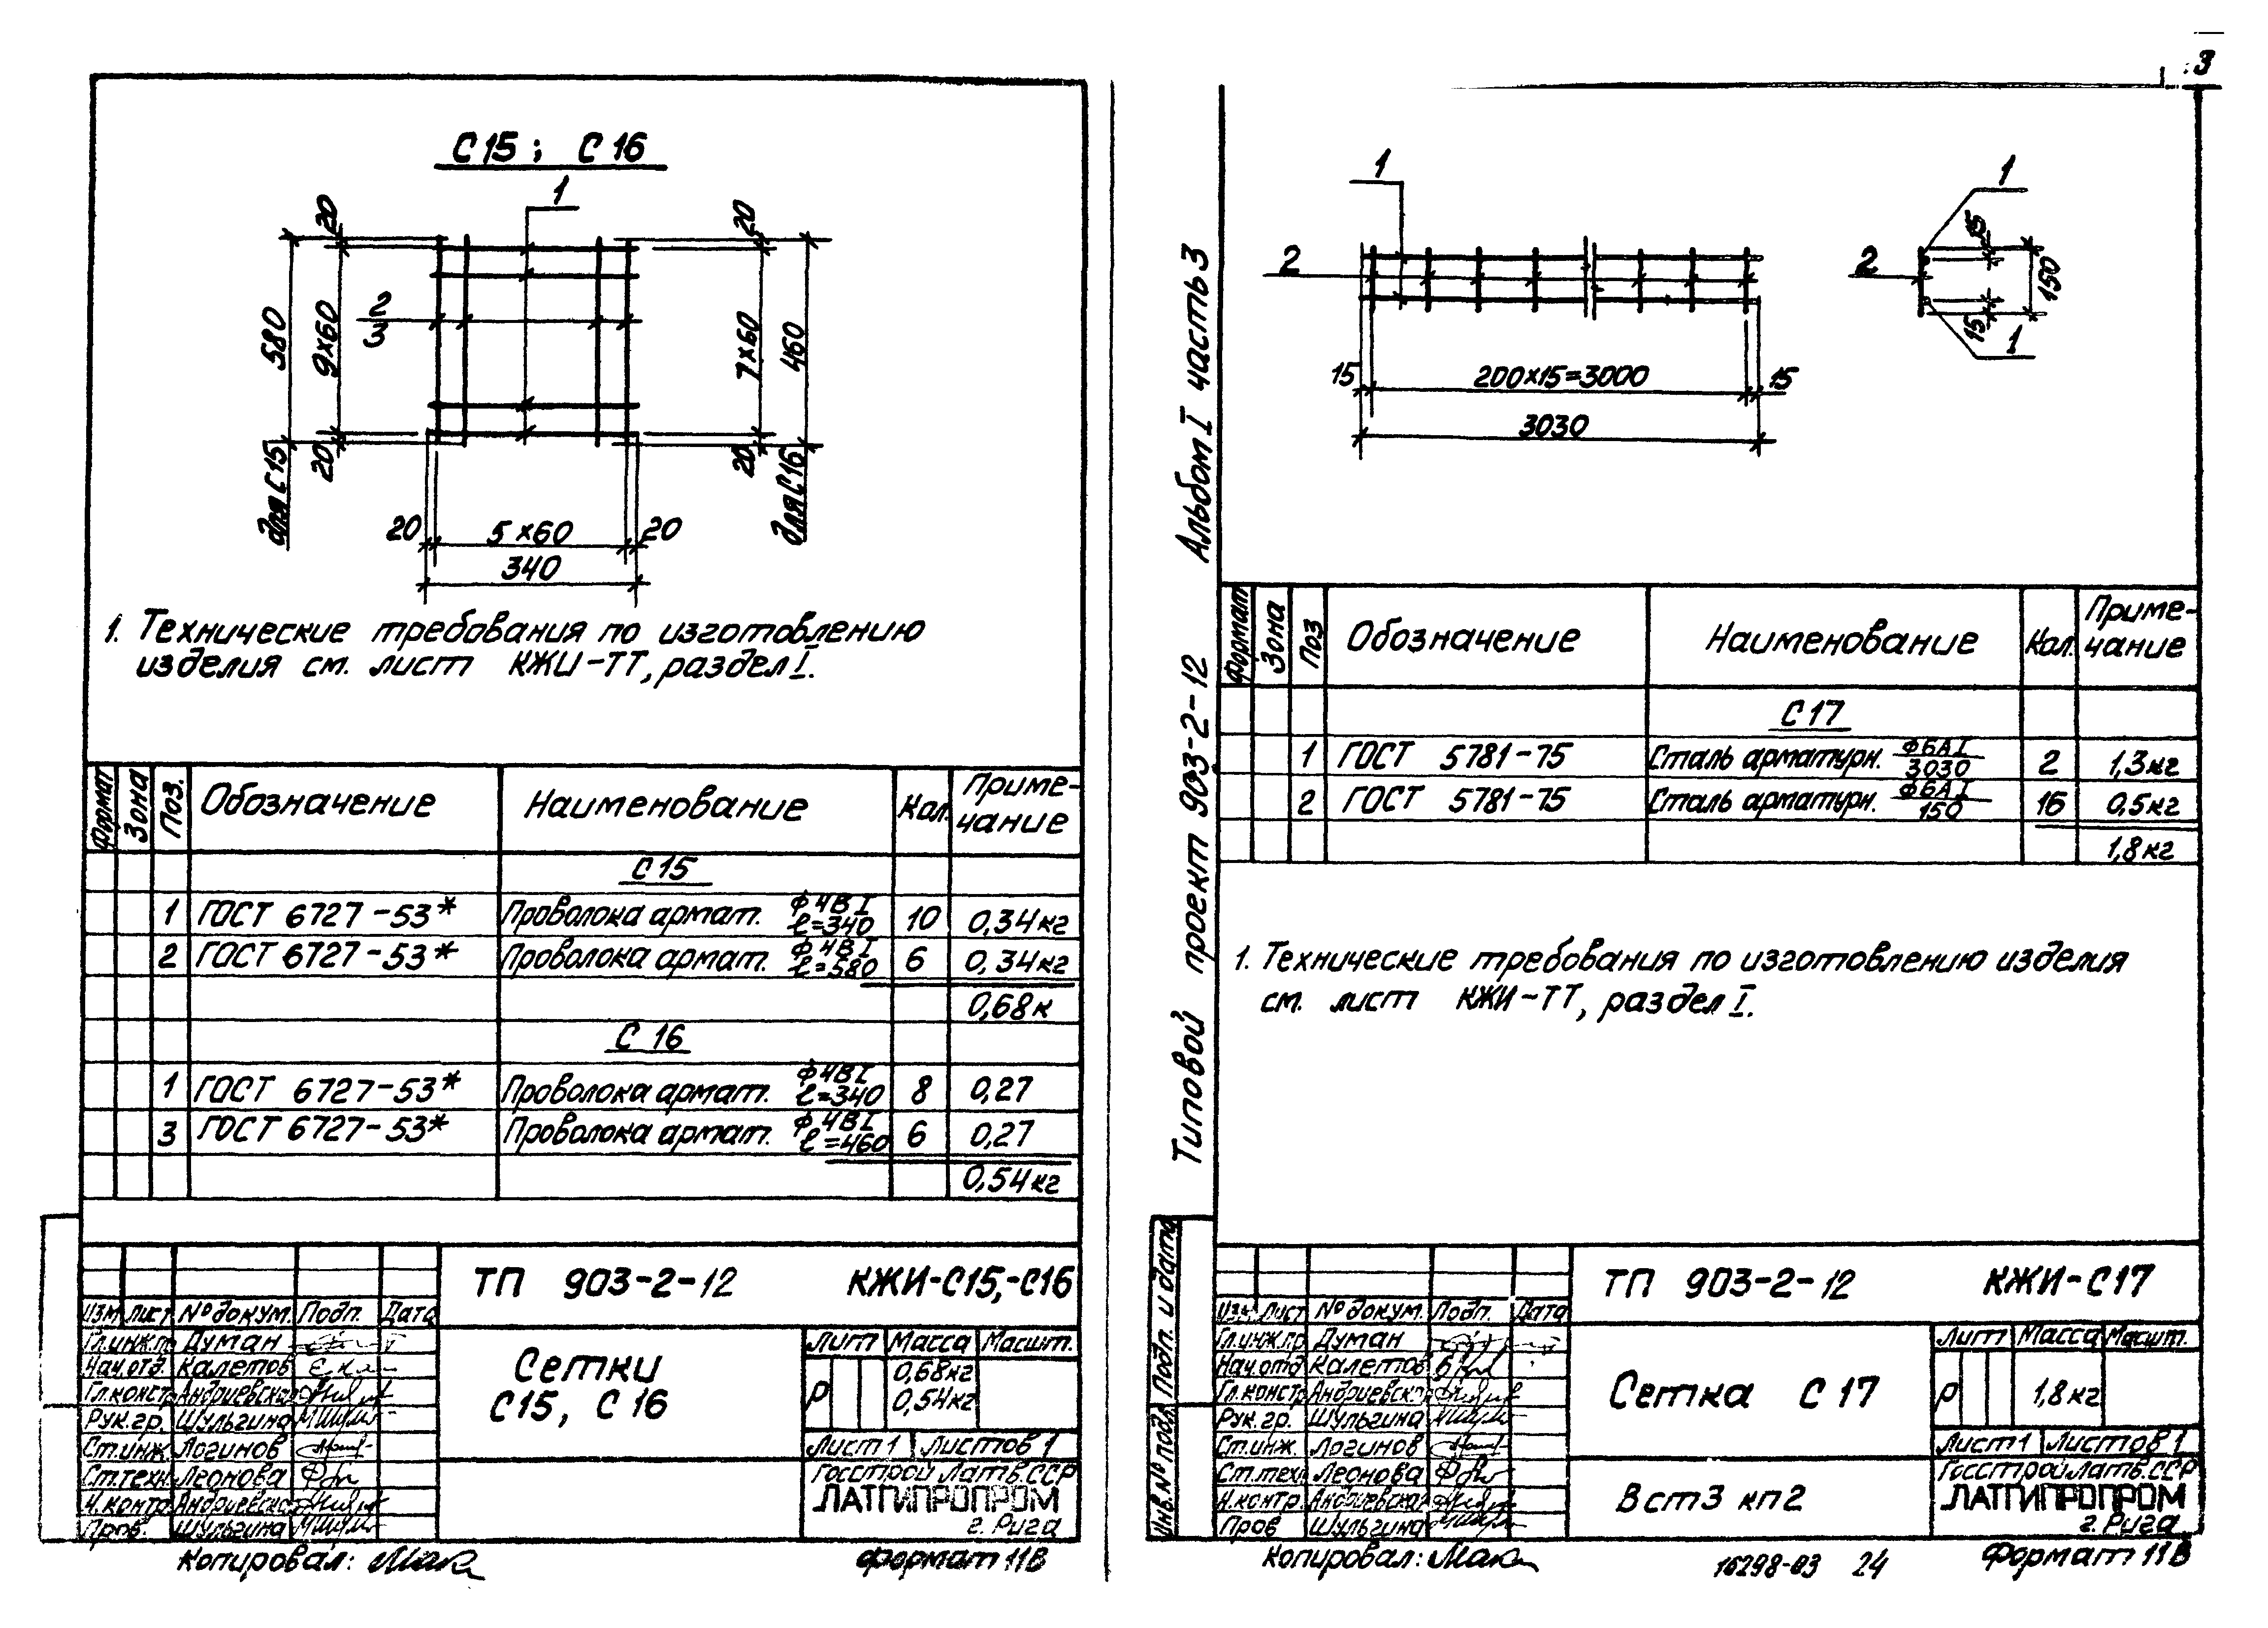 3
С15; С16
1
20
580
9×60
20
для С15
2
3
20
7×60
460
20
для С16
20 5×60 20
340
1. Технические требования по изготовлению
изделия см. лист КЖИ-ТТ, раздел I.
Формат Зона Поз. Обозначение Наименование Кол. Приме-чание
С15
1 ГОСТ 6727-53* Проволока армат. Ф4ВI ℓ=340 10 0,34кг
2 ГОСТ 6727-53* Проволока армат. Ф4ВI ℓ=580 6 0,34кг
0,68к
С 16
1 ГОСТ 6727-53* Проволока армат. Ф4ВI ℓ=340 8 0,27
3 ГОСТ 6727-53* Проволока армат. Ф4ВI ℓ=460 6 0,27
0,54кг
ТП 903-2-12 КЖИ-С15,-С16
Изм Лист № докум. Подп. Дата
Гл.инж.пр Думан
Нач.отд. Калетов
Гл.констр Андриевская
Рук.гр. Шульгина
Ст.инж Логинов
Ст.техн Леонова
Н.контр Андриевская
Пров. Шульгина
Сетки
С15, С 16
Лит Масса Масшт.
Р 0,68кг
0,54кг
Лист 1 Листов 1
Госстрой Латв.ССР
ЛАТГИПРОПРОМ
г. Рига
Копировал:
Формат 11В
Типовой проект 903-2-12 Альбом I часть 3
Инв.№ подл. Подп. и дата
1
2
15 200×15=3000 15
3030
1
2
15
150
15
1
Формат Зона Поз Обозначение Наименование Кол. Приме-чание
С 17
1 ГОСТ 5781-75 Сталь арматурн. Ф6АI 3030 2 1,3кг
2 ГОСТ 5781-75 Сталь арматурн. Ф6АI 150 16 0,5кг
1,8кг
1. Технические требования по изготовлению изделия
см. лист КЖИ-ТТ, раздел I.
ТП 903-2-12 КЖИ-С17
Изм Лист № докум. Подп. Дата
Гл.инж.пр Думан
Нач.отд Калетов
Гл.констр Андриевская
Рук.гр. Шульгина
Ст.инж. Логинов
Ст.техн Леонова
Н.контр. Андриевская
Пров Шульгина
Сетка С 17
Лит Масса Масшт.
Р 1,8кг
Лист 1 Листов 1
Вст3 кп2
Госстрой Латв.ССР
ЛАТГИПРОПРОМ
г. Рига
Копировал:
16298-03 24
Формат 11В